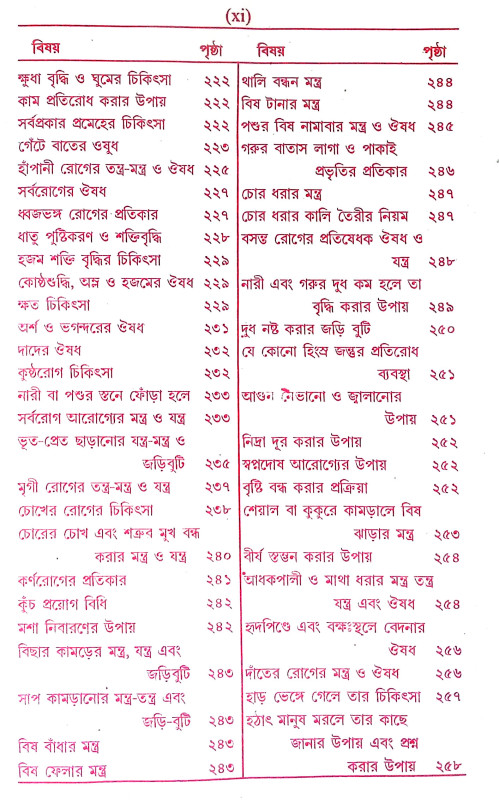 (xi)
বিষয় পৃষ্ঠা
ক্ষুধা বৃদ্ধি ও ঘুমের চিকিৎসা ২২২
কাম প্রতিরোধ করার উপায় ২২২
সর্বপ্রকার প্রমেহের চিকিৎসা ২২২
গেঁটে বাতের ওষুধ ২২৩
হাঁপানী রোগের তন্ত্র-মন্ত্র ও ঔষধ ২২৫
সর্বরোগের ঔষধ ২২৭
ধ্বজভঙ্গ রোগের প্রতিকার ২২৭
ধাতু পুষ্টিকরণ ও শক্তিবৃদ্ধি ২২৮
হজম শক্তি বৃদ্ধির চিকিৎসা ২২৯
কোষ্ঠশুদ্ধি, অম্ল ও হজমের ঔষধ ২২৯
ক্ষত চিকিৎসা ২২৯
অর্শ ও ভগন্দরের ঔষধ ২৩১
দাদের ঔষধ ২৩২
কুষ্ঠরোগ চিকিৎসা ২৩২
নারী বা পশুর স্তনে ফোঁড়া হলে ২৩৩
সর্বরোগ আরোগ্যের মন্ত্র ও যন্ত্র ২৩৩
ভূত-প্রেত ছাড়ানোর যন্ত্র-মন্ত্র ও
জড়িবুটি ২৩৫
মৃগী রোগের তন্ত্র-মন্ত্র ও যন্ত্র ২৩৭
চোখের রোগের চিকিৎসা ২৩৮
চোরের চোখ এবং শত্রুব মুখ বন্ধ
করার মন্ত্র ও যন্ত্র ২৪০
কর্ণরোগের প্রতিকার ২৪১
কুঁচ প্রয়োগ বিধি ২৪২
মশা নিবারণের উপায় ২৪২
বিছার কামড়ের মন্ত্র, যন্ত্র এবং
জড়িবুটি ২৪৩
সাপ কামড়ানোর মন্ত্র-তন্ত্র এবং
জড়ি-বুটি ২৪৩
বিষ বাঁধার মন্ত্র ২৪৩
বিষ ফেলার মন্ত্র ২৪৩
বিষয় পৃষ্ঠা
থালি বন্ধন মন্ত্র ২৪৪
বিষ টানার মন্ত্র ২৪৪
পশুর বিষ নামাবার মন্ত্র ও ঔষধ ২৪৫
গরুর বাতাস লাগা ও পাকাই
প্রভৃতির প্রতিকার ২৪৬
চোর ধরার মন্ত্র ২৪৭
চোর ধরার কালি তৈরীর নিয়ম ২৪৭
বসন্ত রোগের প্রতিষেধক ঔষধ ও
যন্ত্র ২৪৮
নারী এবং গরুর দুধ কম হলে তা
বৃদ্ধি করার উপায় ২৪৯
দুধ নষ্ট করার জড়ি বুটি ২৫০
যে কোনো হিংস্র জন্তুর প্রতিরোধ
ব্যবস্থা ২৫১
আগুন নেভানো ও জ্বালানোর
উপায় ২৫১
নিদ্রা দূর করার উপায় ২৫২
স্বপ্নদোষ আরোগ্যের উপায় ২৫২
বৃষ্টি বন্ধ করার প্রক্রিয়া ২৫২
শেয়াল বা কুকুরে কামড়ালে বিষ
ঝাড়ার মন্ত্র ২৫৩
বীর্য স্তম্ভন করার উপায় ২৫৪
আধকপালী ও মাথা ধরার মন্ত্র তন্ত্র
যন্ত্র এবং ঔষধ ২৫৪
হৃদপিণ্ডে এবং বক্ষঃস্থলে বেদনার
ঔষধ ২৫৬
দাঁতের রোগের মন্ত্র ও ঔষধ ২৫৬
হাড় ভেঙ্গে গেলে তার চিকিৎসা ২৫৭
হঠাৎ মানুষ মরলে তার কাছে
জানার উপায় এবং প্রশ্ন
করার উপায় ২৫৮